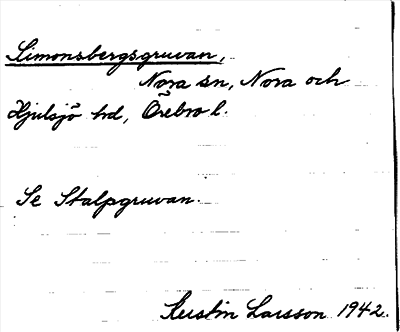 Simonsbergsgruvan,
Nora sn, Nora och
Hjulsjö hd, Örebro l.
Se Stalpgruvan.
Kerstin Larsson 1942.